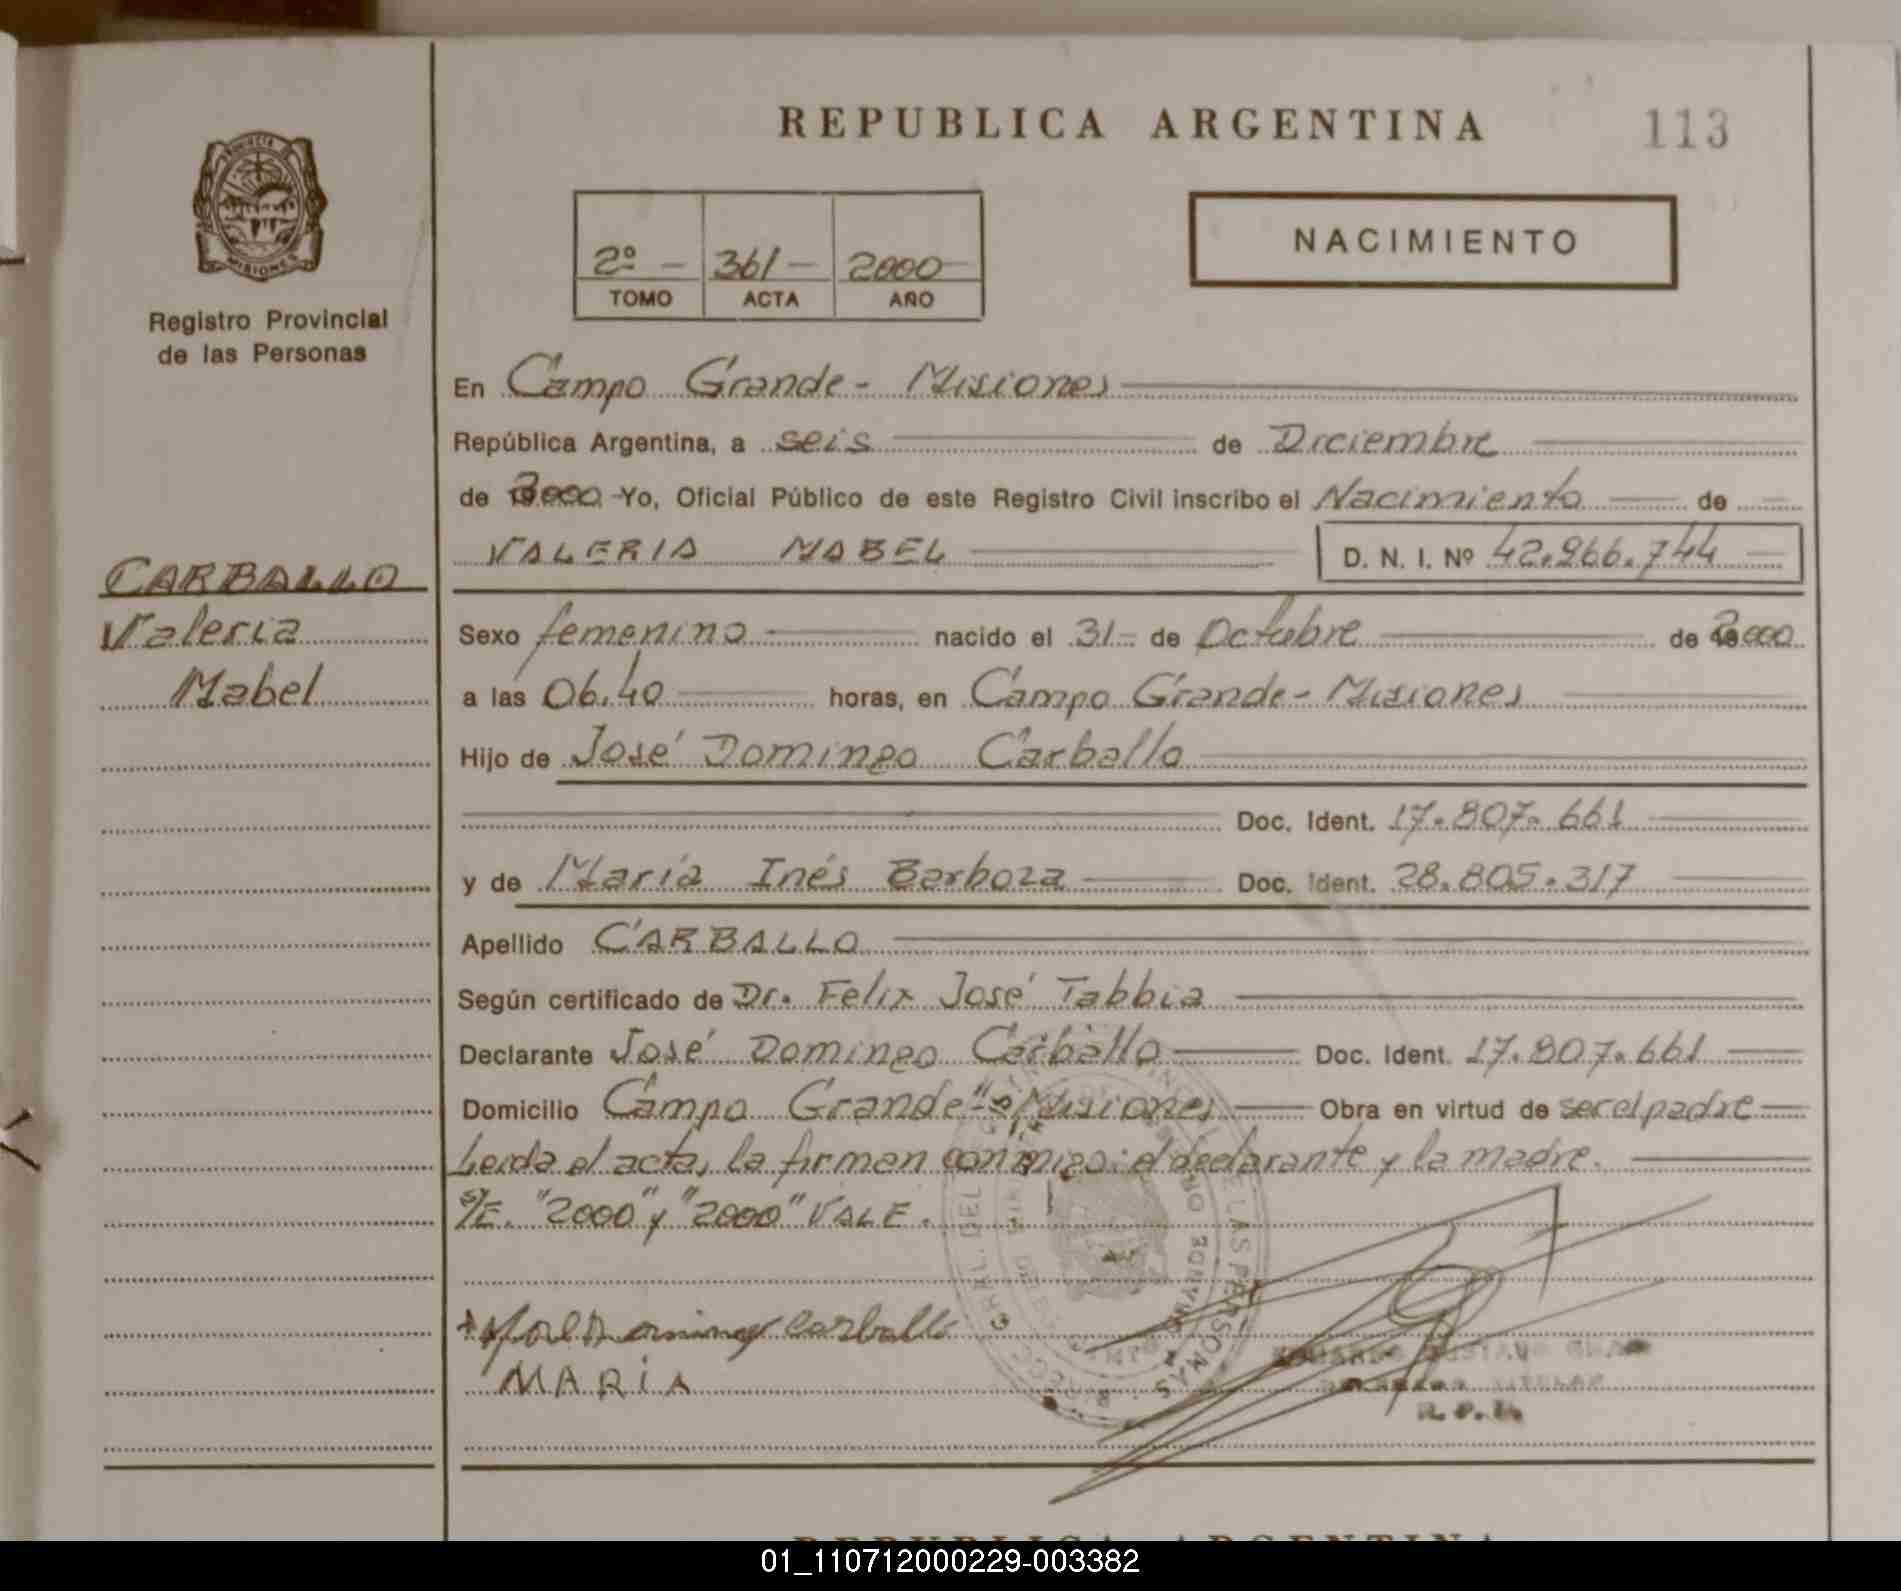 REPUBLICA ARGENTINA
113
PROVINCIA DE
MISIONES
Registro Provincial
de las Personas
2º - 361 - 2000
TOMO ACTA AÑO
NACIMIENTO
En Campo Grande - Misiones
República Argentina, a seis de Diciembre
de 2000 Yo, Oficial Público de este Registro Civil inscribo el Nacimiento de
VALERIA MABEL D. N. I. Nº 42.966.744
CARBALLO
Valeria
Mabel
Sexo femenino nacido el 31 de Octubre de 2000
a las 06.40 horas, en Campo Grande - Misiones
Hijo de José Domingo Carballo
Doc. Ident. 17.807.661
y de María Inés Barboza Doc. Ident. 28.805.317
Apellido CARBALLO
Según certificado de Dr. Felix José Tabbia
Declarante José Domingo Carballo Doc. Ident. 17.807.661
Domicilio Campo Grande - Misiones Obra en virtud de ser el padre
Leida el acta, la firman conmigo: el declarante y la madre.
S/E. "2000" y "2000" VALE.
Carballo
MARIA
REPUBLICA ARGENTINA
01_110712000229-003382